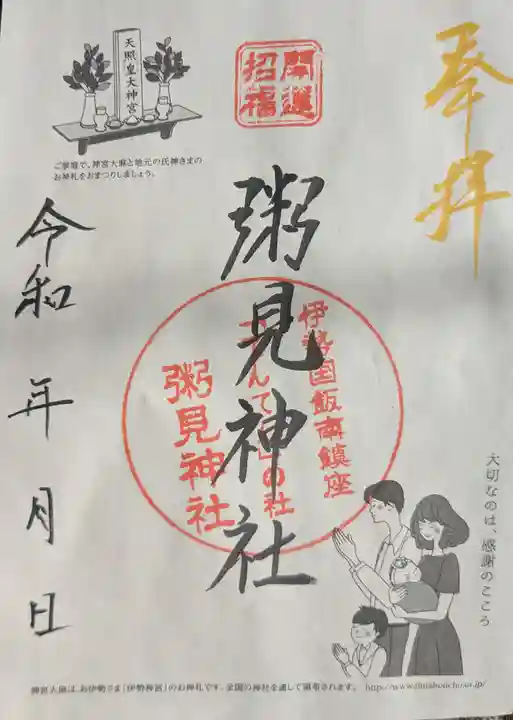 奉拝
開運
招福
天照皇大神宮
ご家庭で、神宮大麻と地元の氏神さまの
お神札をおまつりしましょう。
粥見神社
伊勢国飯南鎮座
の社
粥見神社
令和 年 月 日
大切なのは、感謝のこころ
神宮大麻は、お伊勢さま「伊勢神宮」のお神札です。全国の神社を通して頒布されます。